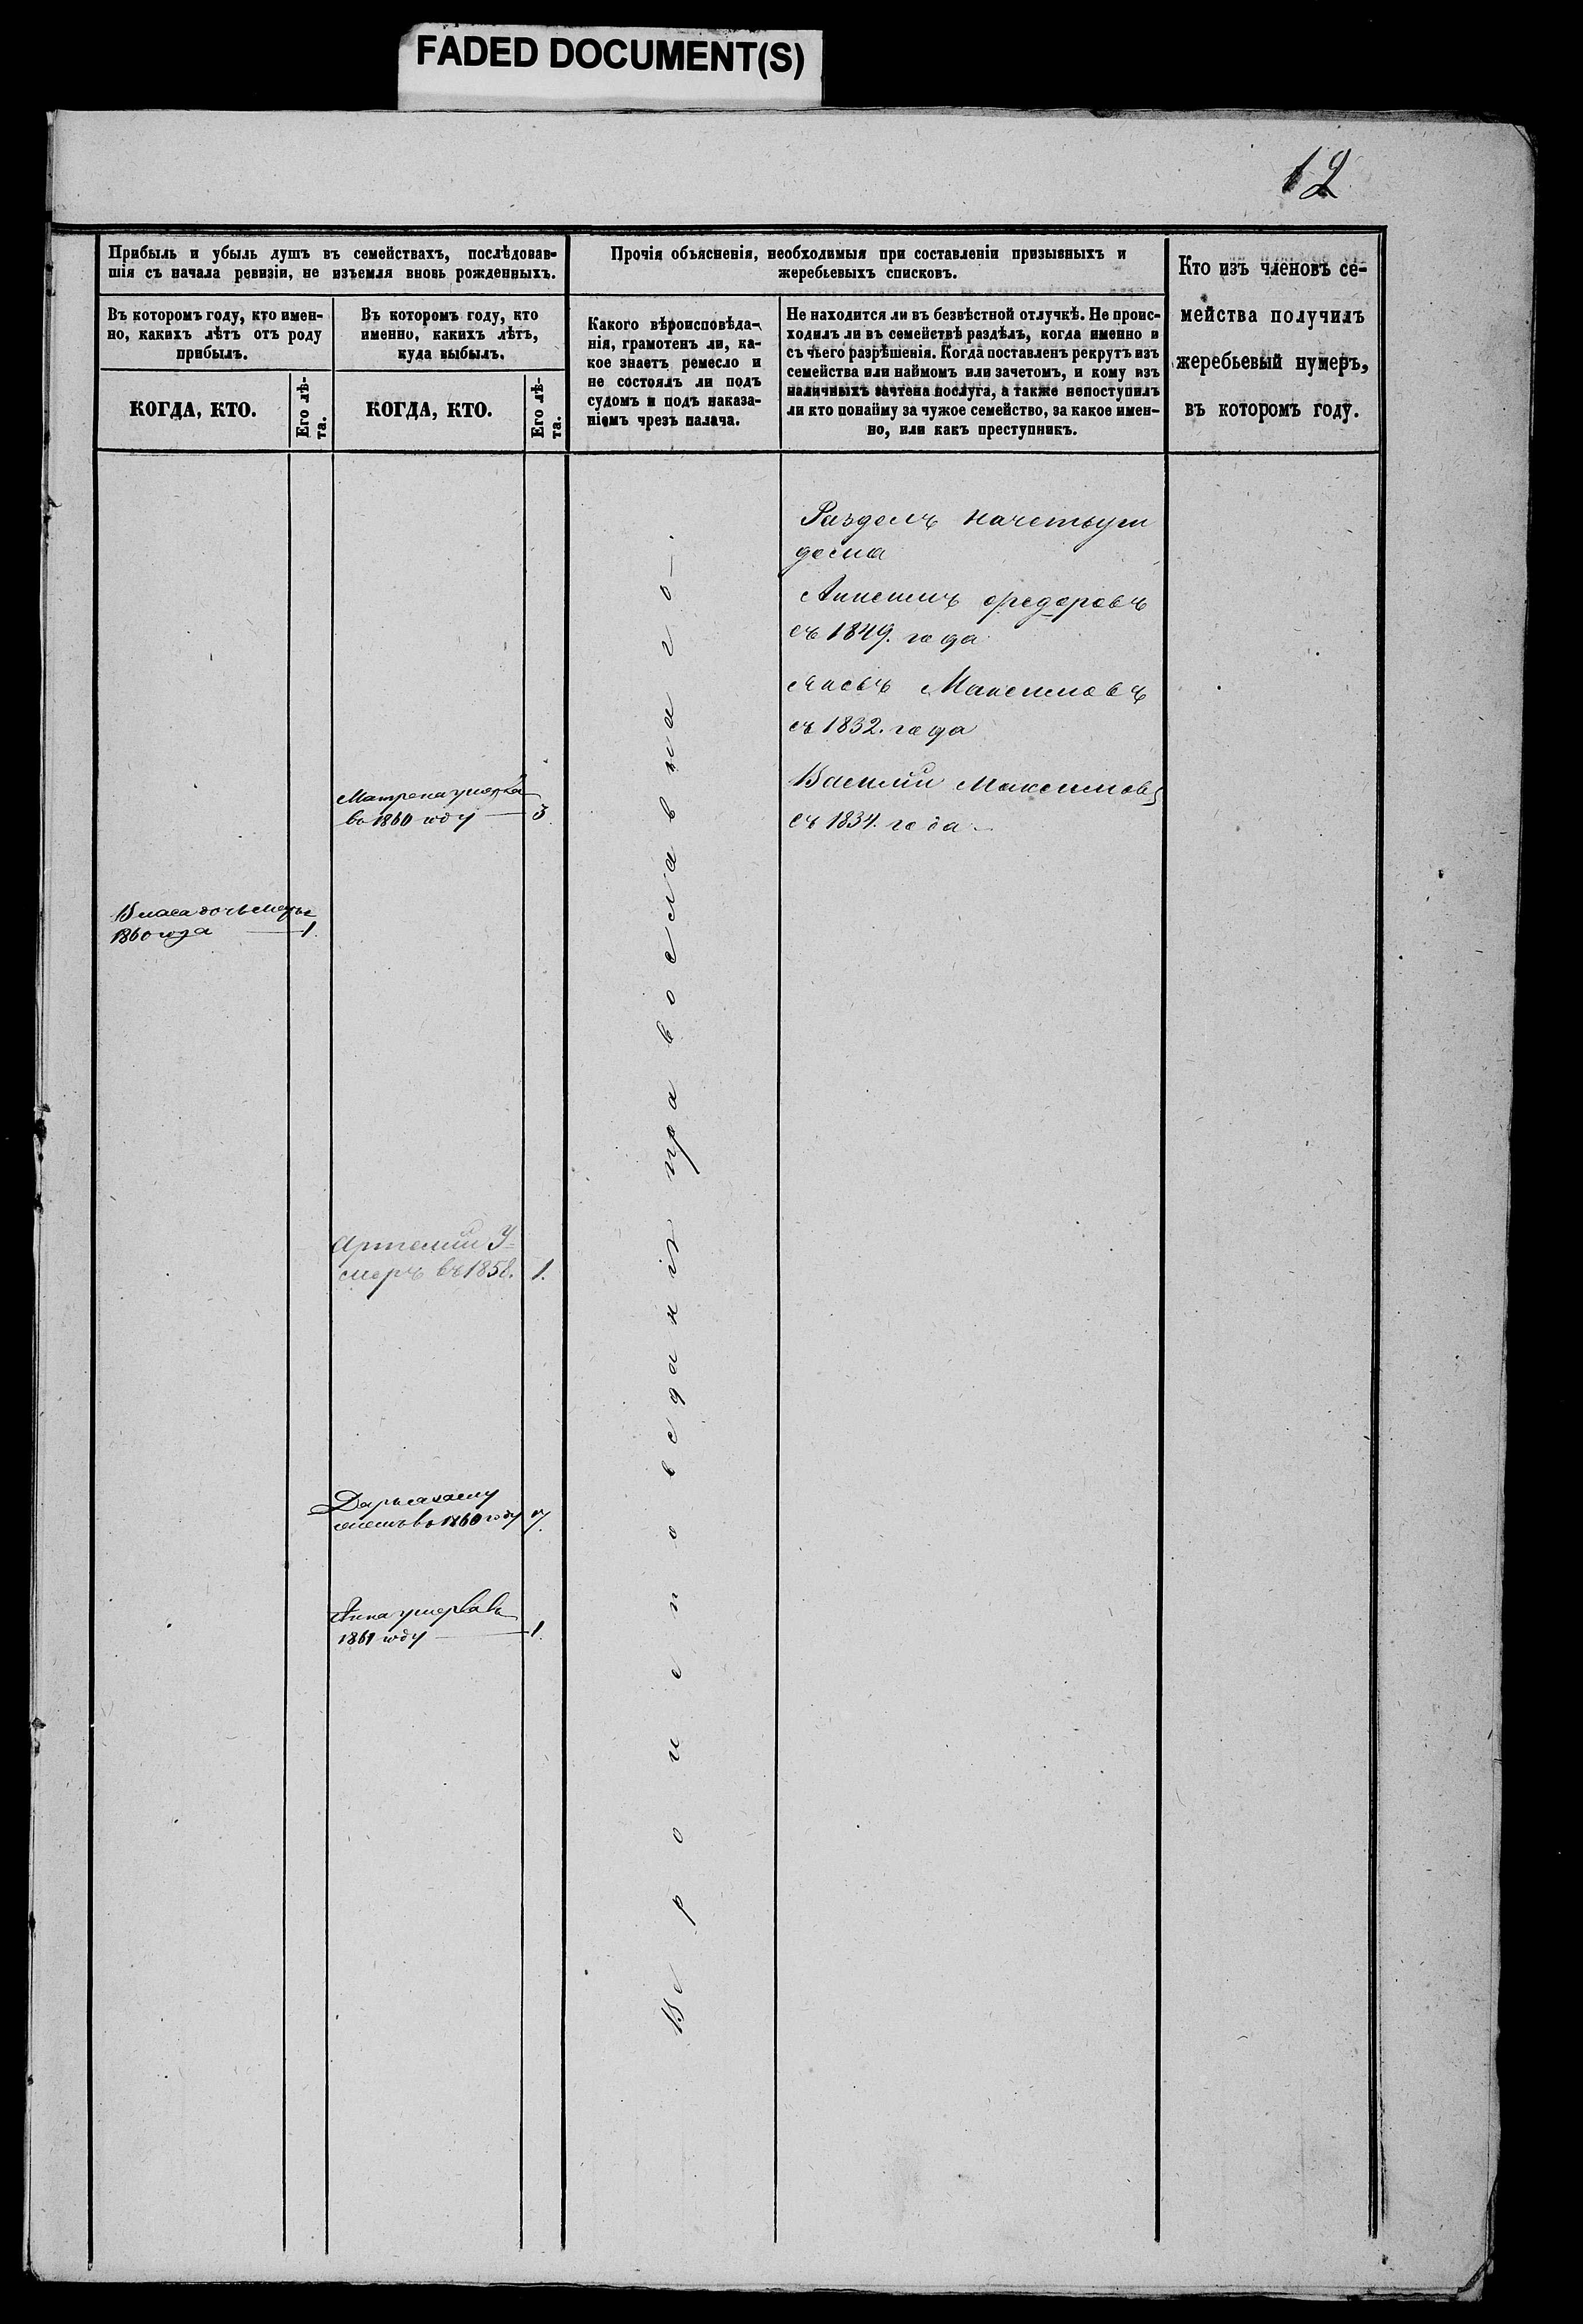 FADED DOCUMENT(S)
12
Прибыль и убыль душъ въ семействахъ, послѣдовав-
шія съ начала ревизіи, не изъемля вновь рожденныхъ.
Въ которомъ году, кто имен-
но, какихъ лѣтъ отъ роду
прибылъ.
КОГДА, КТО.
Его лѣ-
та.
Въ которомъ году, кто
именно, какихъ лѣтъ,
куда выбылъ.
КОГДА, КТО.
Его лѣ-
та.
Прочія объясненія, необходимыя при составленіи призывныхъ и
жеребьевыхъ списковъ.
Какого вѣроисповѣда-
нія, грамотенъ ли, ка-
кое знаетъ ремесло и
не состоялъ ли подъ
судомъ и подъ наказа-
ніемъ чрезъ палача.
Не находится ли въ безвѣстной отлучкѣ. Не проис-
ходилъ ли въ семействѣ раздѣлъ, когда именно и
съ чьего разрѣшенія. Когда поставленъ рекрутъ изъ
семейства или наймомъ или зачетомъ, и кому изъ
наличныхъ зачтена послуга, а также непоступилъ
ли кто понайму за чужое семейство, за какое имен-
но, или какъ преступникъ.
Кто изъ членовъ се-
мейства получилъ
жеребьевый нумеръ,
въ которомъ году.
Разделъ на
дома
федоровъ
съ 1849. года
Максимовъ
съ 1832. года
Василий Максимовъ
съ 1834. года
Матрена умерла
во 1860 году 3.
Власа дочь
1860 года 1.
Артемий У-
меръ въ 1858. 1.
Дарья
во 1860 году
Анна умерла въ
1861 году 1.
Вероисповеданія православнаго.